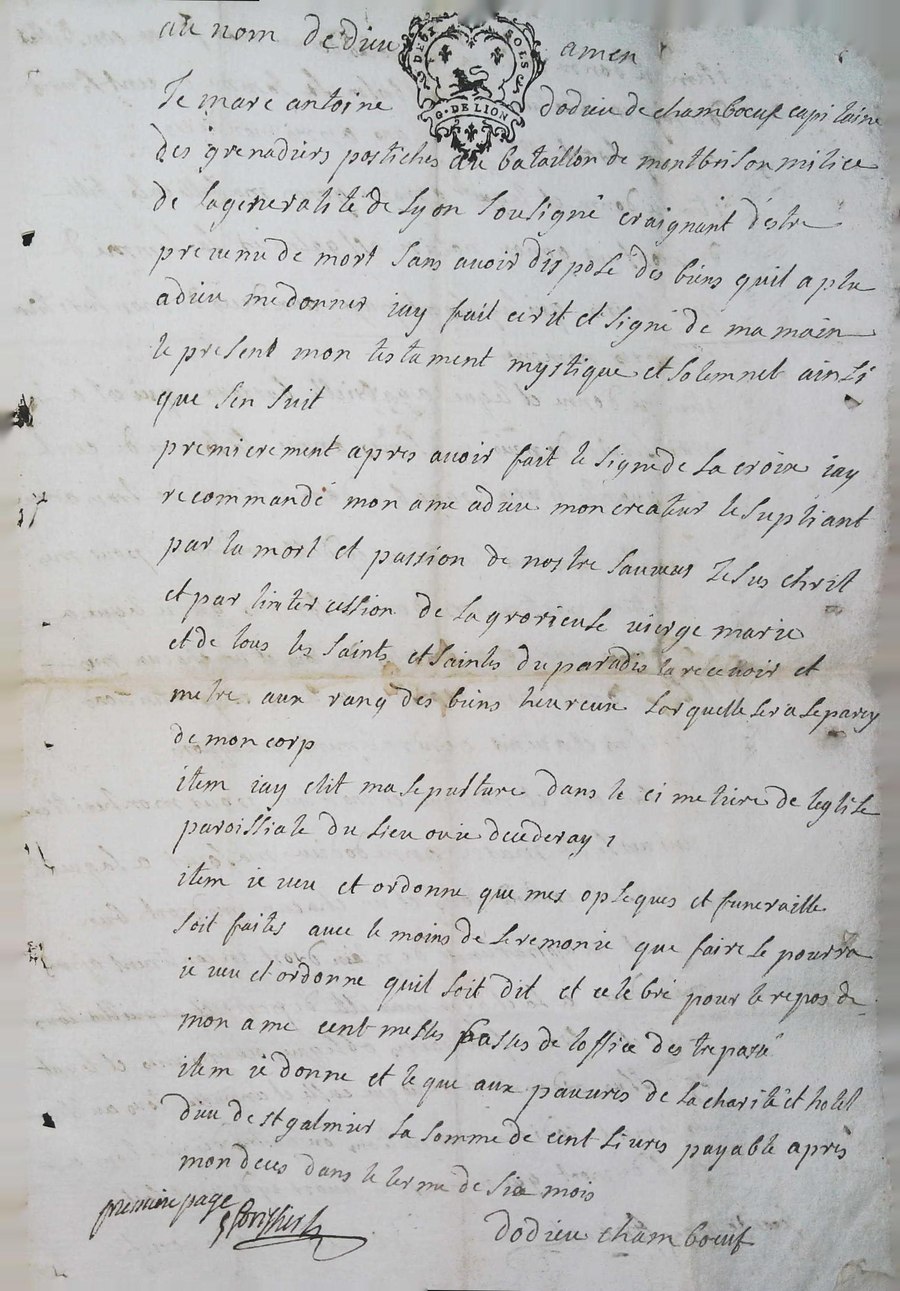 au nom de dieu amen
DEUX SOLS
G. DE LION
Je marc antoine dodieu de chamboeuf capitaine
des grenadiers postiches au bataillon de montbrison milice
de la generalité de Lyon sousigné craignant destre
prevenu de mort sans avoir disposé des biens quil a plu
adieu me donner jay fait ecrit et signé de ma main
le present mon testament mystique et solemnel ainssi
que sen suit
premierement apres avoir fait le signe de la croix jay
recommandé mon ame adieu mon createur le supliant
par la mort et passion de nostre sauveur Jesus christ
et par lintercession de la grorieuse vierge marie
et de tous les saints et saintes du paradis la recevoir et
metre aux rang des biens heureux lorquelle sera separey
de mon corp
item jay elit ma sepulture dans le cimetiere de leglise
paroissiale du lieu ou je decederay
item je veu et ordonne que mes opseques et funeraille
soit faites avec le moins de seremonie que faire se pourra
je veu et ordonne quil soit dit et celebré pour le repos de
mon ame cent messes basses de loffice des trepassé
item je donne et legue aux pauvres de la charité et hotel
dieu de st galmier la somme de cent livres payable apres
mon deces dans le terme de six mois
premiere page
dodieu chamboeuf